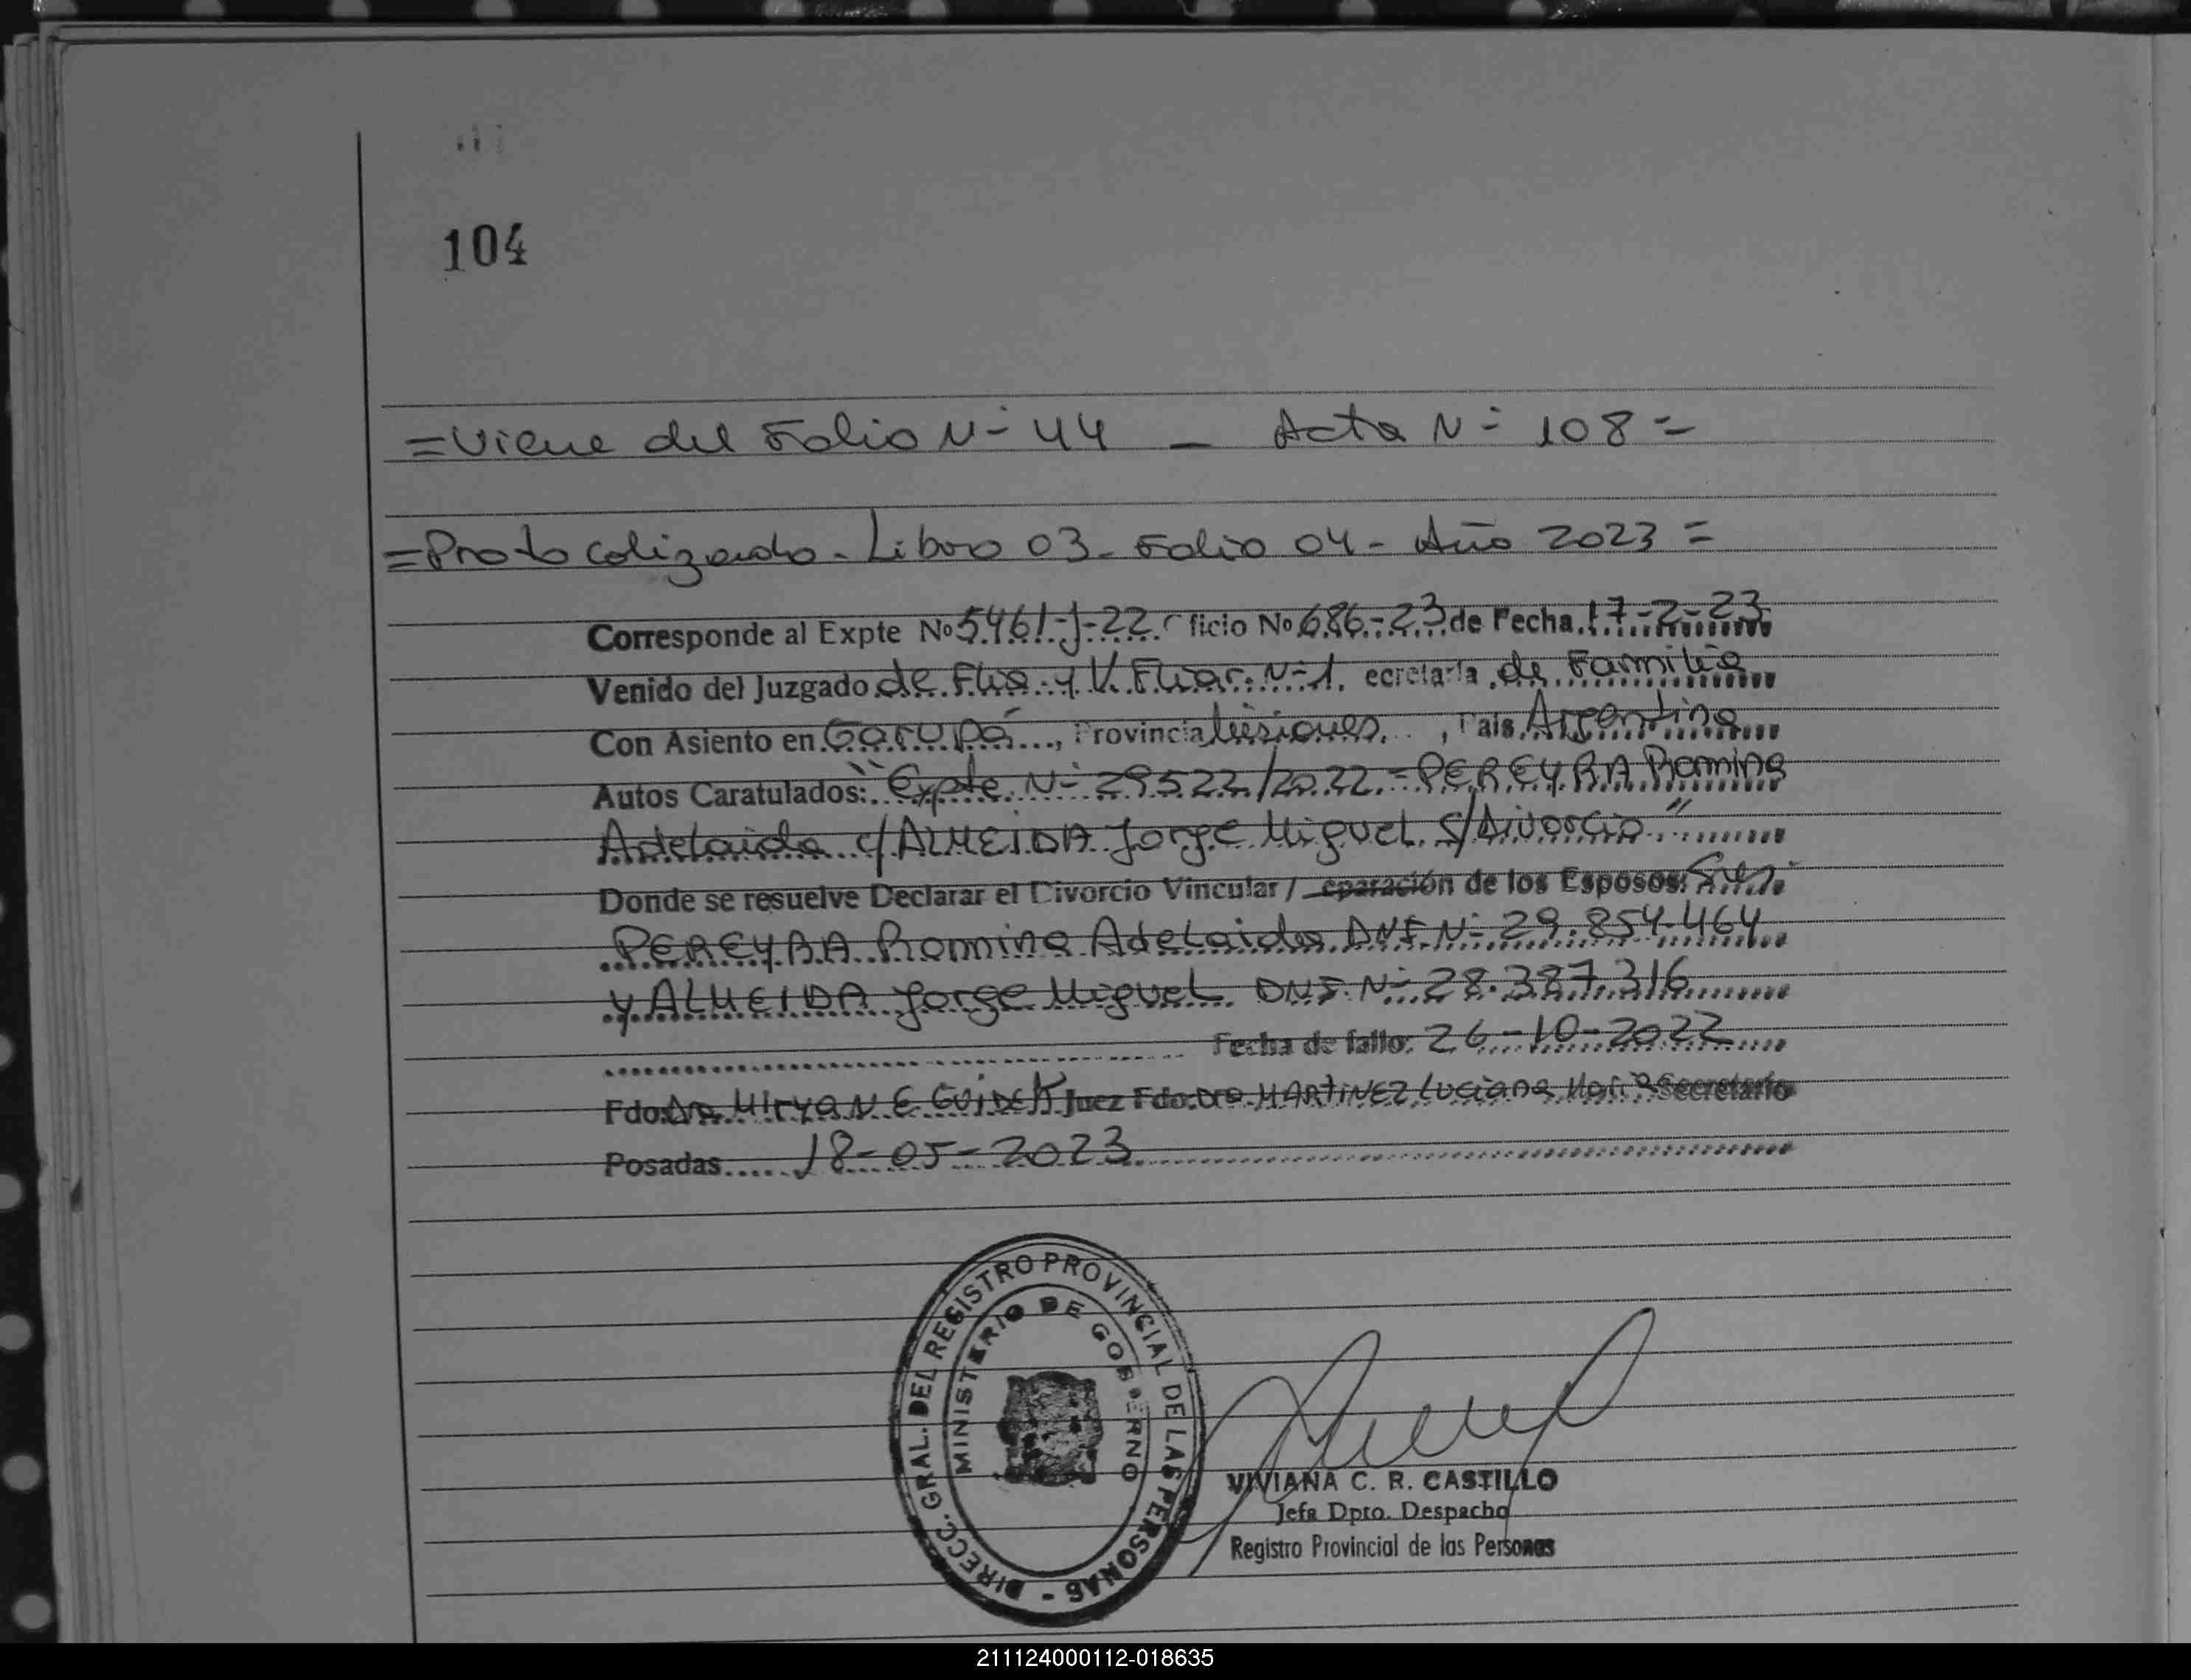 104
=Viene del Folio N- 44 - Acta N- 108=
=Protocolizado - Libro 03 - Folio 04 - Año 2023=
Corresponde al Expte Nº 5461-J-22. ficio Nº 686-23 de Fecha 17-2-23
Venido del Juzgado de Flia. y V. Fliar. N-1. ecretaria de Familia
Con Asiento en Garupá, Provincia Misiones, País Argentina
Autos Caratulados: "Expte. N- 29522/2022 = PEREYRA Romina
Adelaida c/ ALMEIDA Jorge Miguel s/ Divorcio"
Donde se resuelve Declarar el Divorcio Vincular / eparación de los Esposos: Sres.
PEREYRA Romina Adelaida DNI. N- 29.854.464
y ALMEIDA Jorge Miguel DNI. N- 28.387.316
Fecha de fallo: 26-10-2022
Fdo. Dra. Miryan E Juez Fdo. Dra MARTINEZ Luciana María Secretario
Posadas 18-05-2023
DIRECC. GRAL. DEL REGISTRO PROVINCIAL DE LAS PERSONAS -
MINISTERIO DE GOBIERNO
VIVIANA C. R. CASTILLO
Jefa Dpto. Despacho
Registro Provincial de las Personas
211124000112-018635